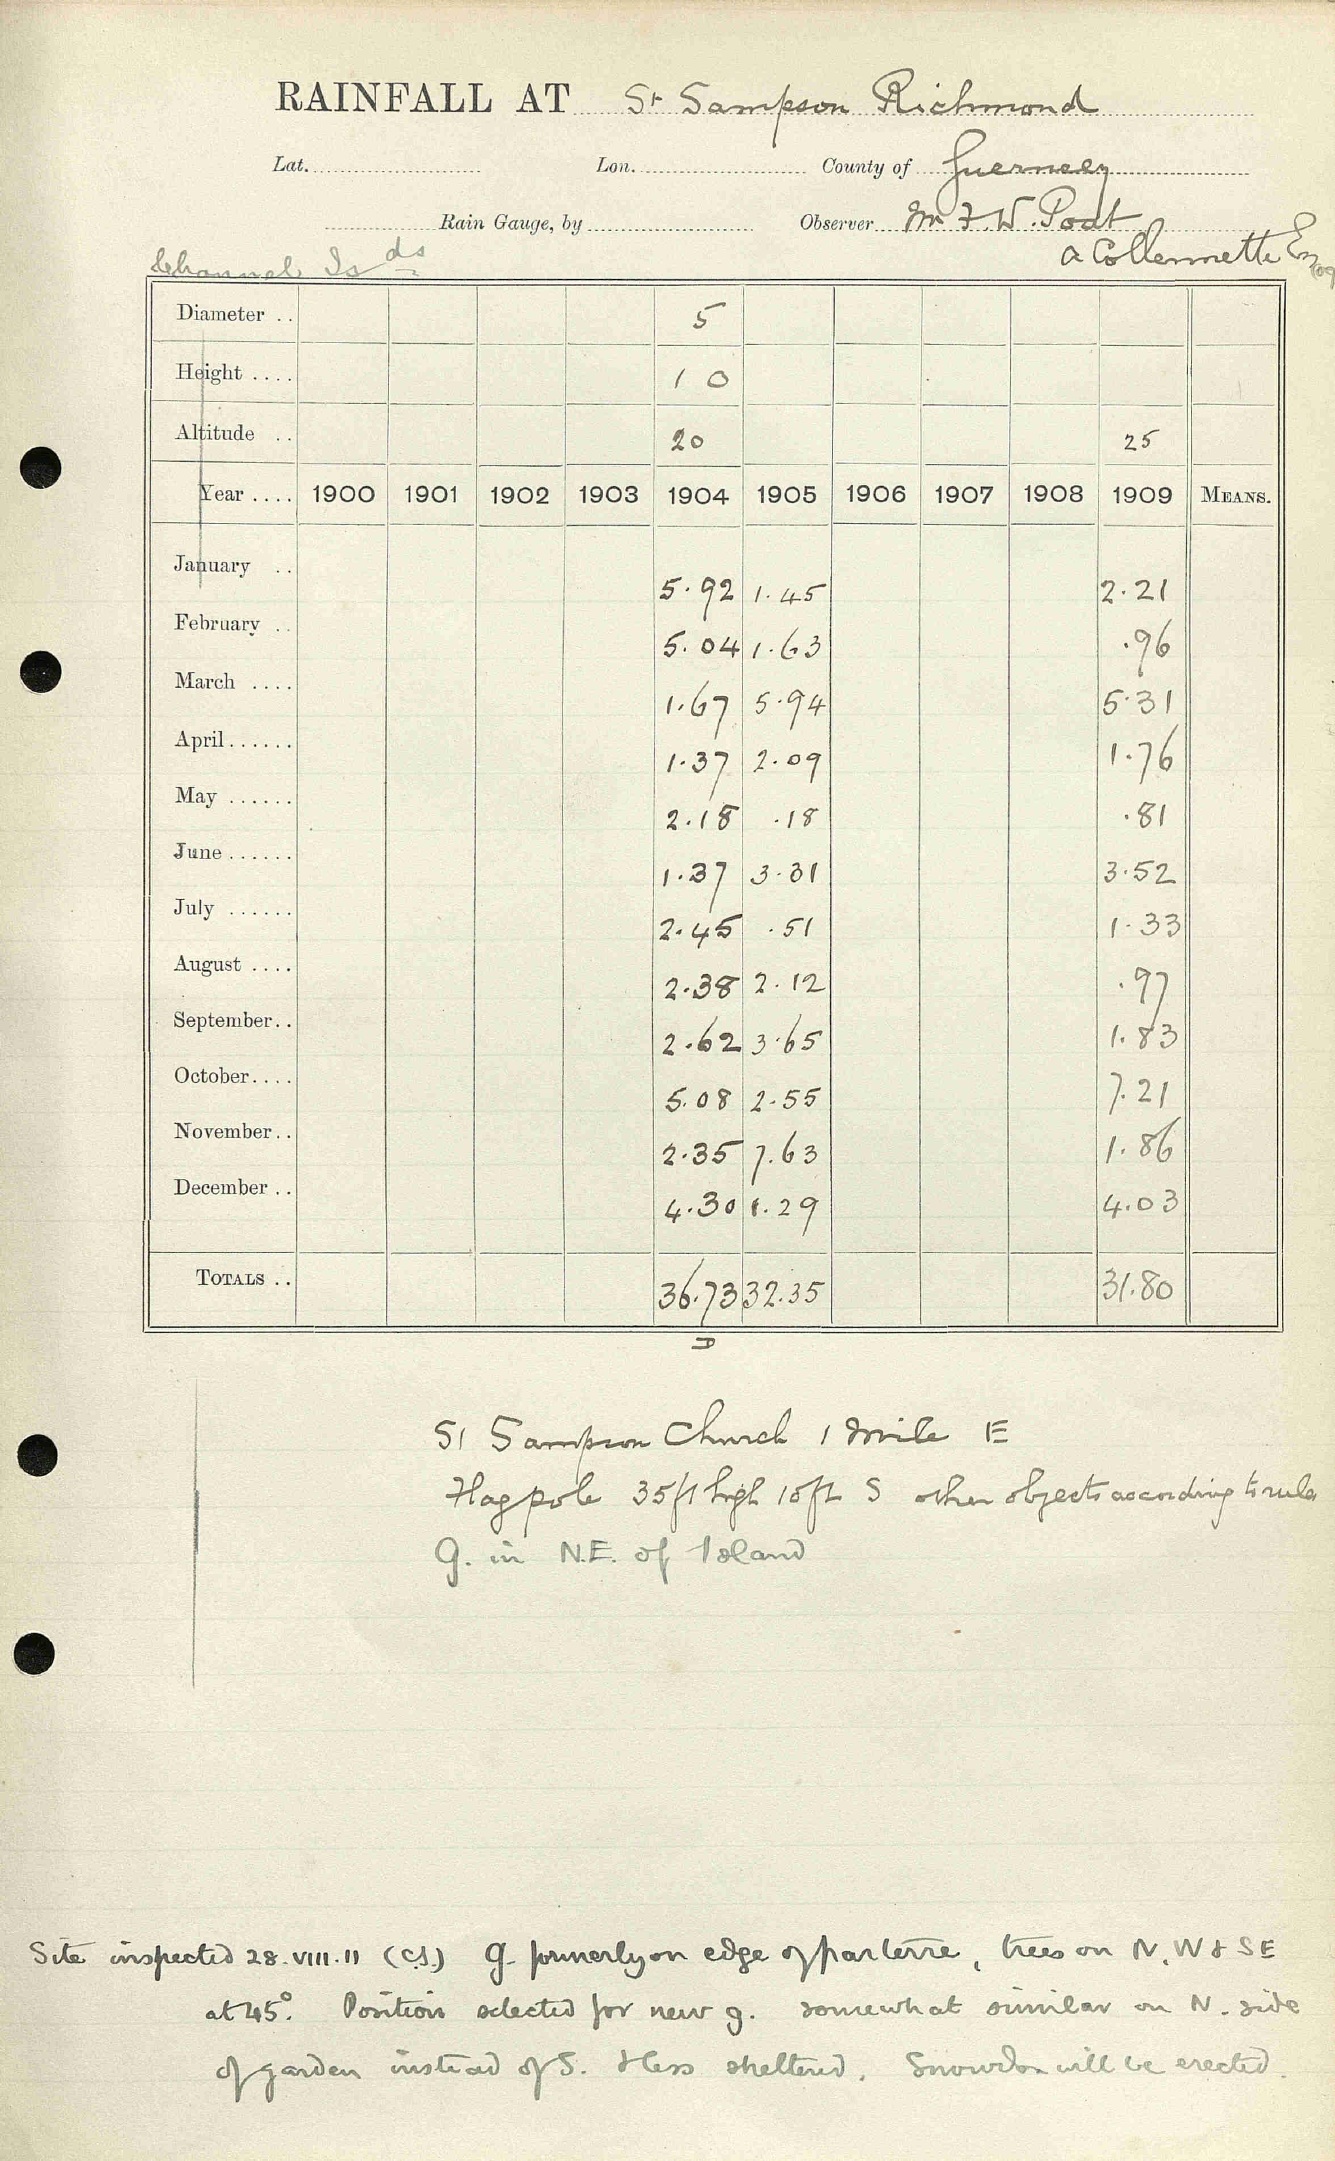 RAINFALL AT St Sampson Richmond
Lat. Lon. County of Guernsey
Rain Gauge, by Observer Mr F. W. Poat
Channel Is ds A Collennette Esq
Diameter .. 5
Height .... 1 0
Altitude .. 20 25
Year .... 1900 1901 1902 1903 1904 1905 1906 1907 1908 1909 MEANS.
January .. 5.92 1.45 2.21
February .. 5.04 1.63 .96
March .... 1.67 5.94 5.31
April ...... 1.37 2.09 1.76
May ...... 2.18 .18 .81
June ...... 1.37 3.31 3.52
July ...... 2.45 .51 1.33
August .... 2.38 2.12 .97
September .. 2.62 3.65 1.83
October .... 5.08 2.55 7.21
November .. 2.35 7.63 1.86
December .. 4.30 1.29 4.03
TOTALS .. 36.73 32.35 31.80
D
St Sampson Church 1 Mile E
Flagpole 35ft high 10ft S other objects according to rule
G. in N.E. of Island
Site inspected 28.VIII.11 (C.S.) G. formerly on edge of parterre, trees on N, W & SE
at 45°. Position selected for new g. somewhat similar on N. side
of garden instead of S. & less sheltered. Snowdon will be erected.